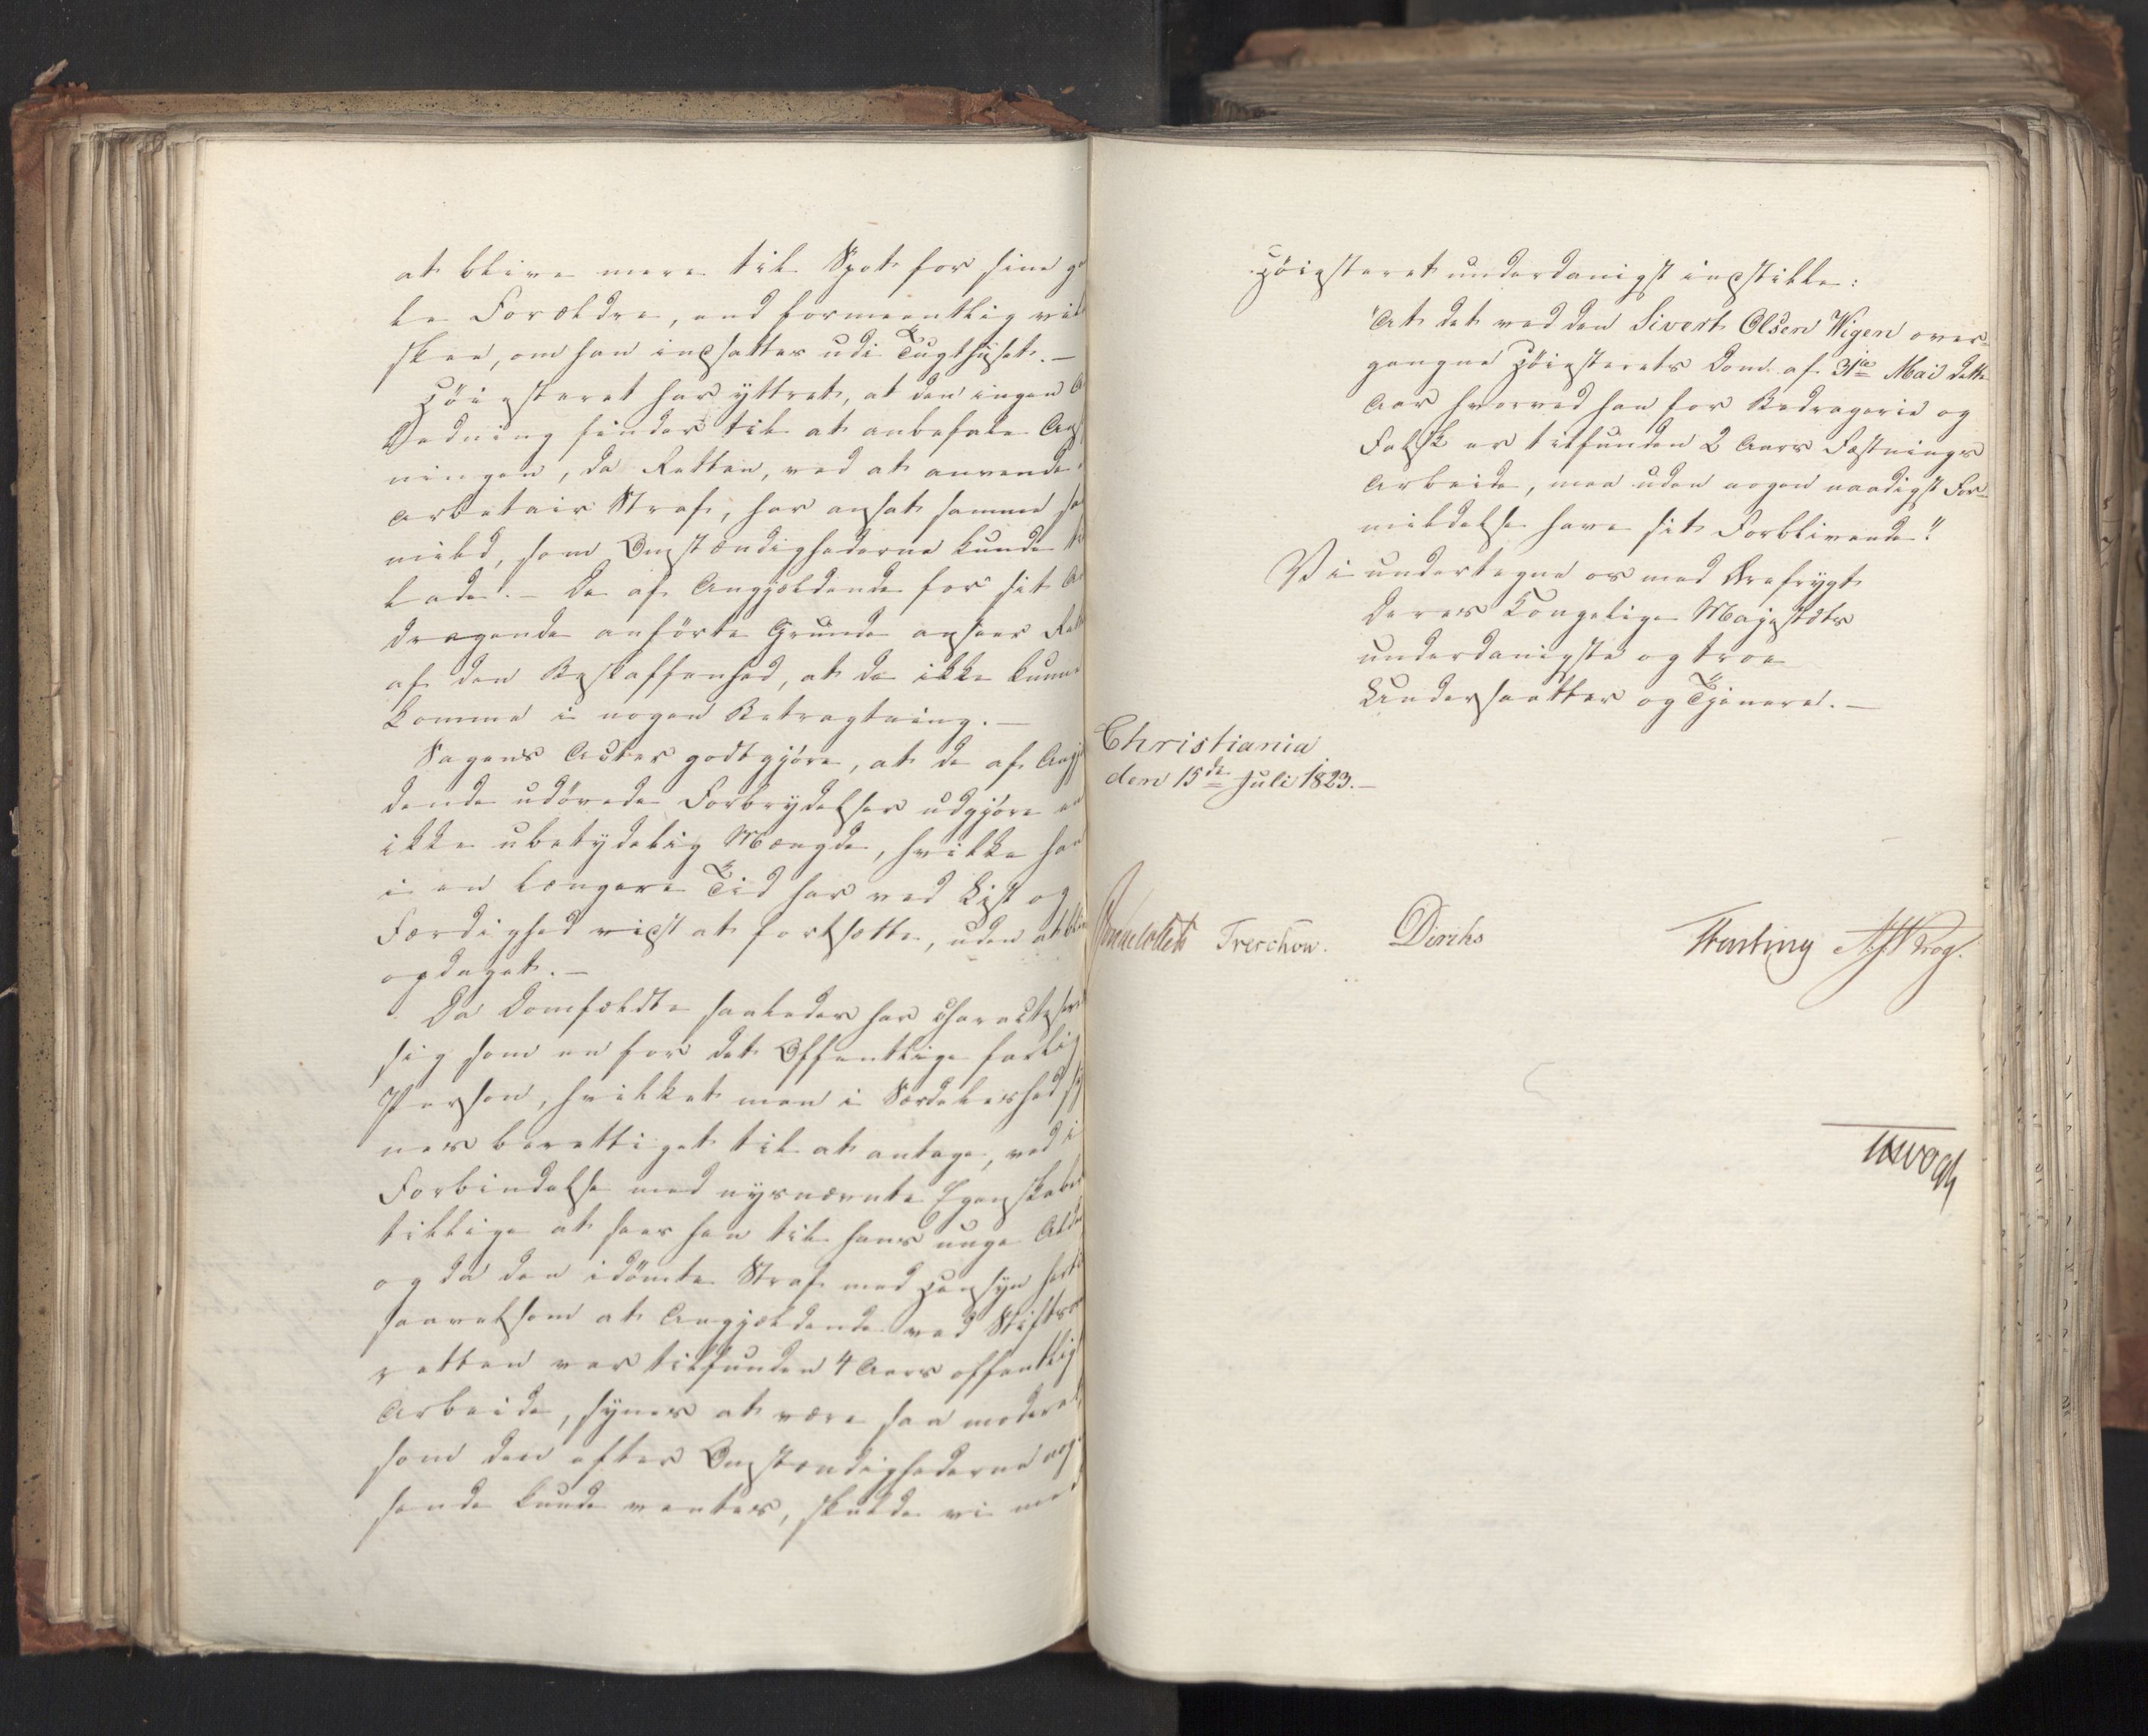 at blive mere til Spot for sine ga
le Forældre, end formeentlig vil
skee, om han indsættes udi Tugthuset. —
Høiesteret har yttret, at den ingen A
ledning finder til at anbefale Ans
ningen, da Retten, ved at anvende
arbitair Straf, har ansat samme saa
mild, som Omstændighederne kunde til
lade. — De af Angjældende for sit A
dragende anførte Grunde ansees Rett
af den Beskaffenhed, at de ikke kunne
komme i nogen Betragtning. —
Sagens Acter godtgjøre, at de af Angjæ
dende udøvede Forbrydelser udgjøre en
ikke ubetydelig Mængde, hvilke han
i en længere Tid har ved List og
Færdighed vidst at fortsætte, uden at bliv
opdaget. —
Da Domfældte saaledes har characteriser
sig som en for det Offentlige farlig
Person, hvilket man i Særdeleshed sy
nes berettiget til at antage, ved i
Forbindelse med nysnævnte Egenskaber
tillige at see hen til hans unge Alder
og da den idømte Straf med Hensyn hertil
saavelsom at Angjældende ved Stifts
retten var tilfunden 4 Aars offentlig
Arbeide, synes at være saa moderat,
som den efter Omstændighederne
sende kunde ventes, skulde vi med
Høiesteret underdanigst indstille:
"At det ved den Sivert Olsen Wigen over-
gangne Høiesterets Dom af 31te Mai dette
Aar hvorved han for Bedragerie og
Falsk er tilfunden 2 Aars Fæstnings
Arbeide, maa uden nogen naadigst For-
mildelse have sit Forblivende."
Vi undertegne os med Ærefrygt
Deres Kongelige Majestæts
underdanigste og troe
Undersaatter og Tjenere. —
Christiania
den 15de Juli 1823. —
Treschow. Diriks